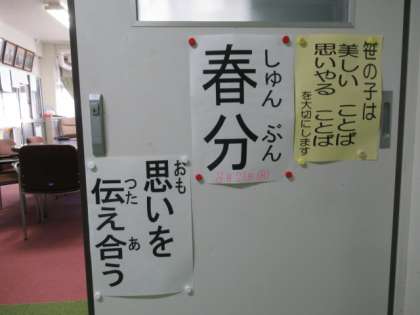 笹の子は
美しい ことば
思いやる ことば
を大切にします
しゅん ぶん
春分
おも
思いを
つた あ
伝え合う